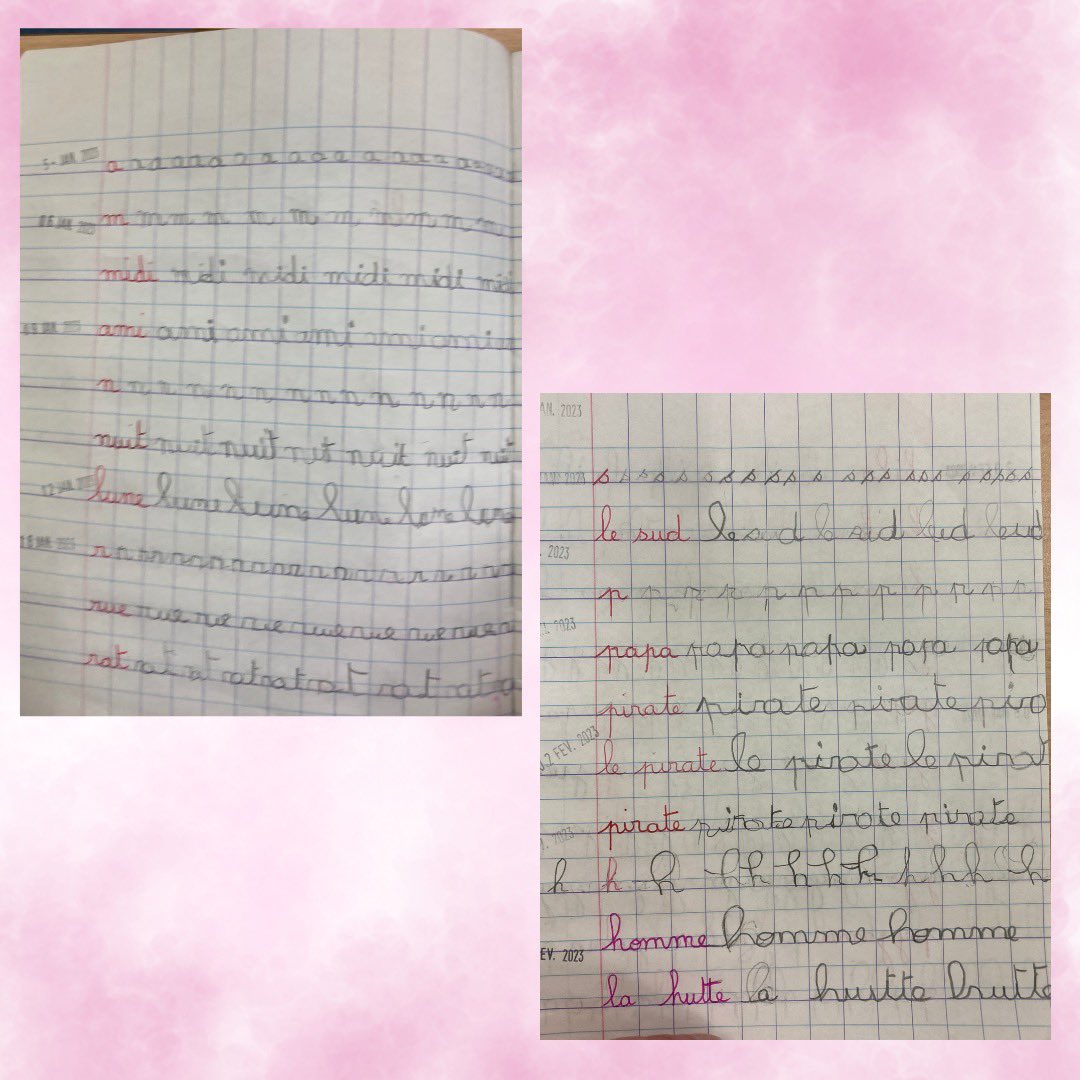 5 - JAN. 2023 a a a a a a a a a a a a a a a a a a a
06 JAN. 2023 m m m m m m m m m m m
midi midi midi midi midi midi
ami ami ami ami ami ami
n n n n n n n n n n n n
nuit nuit nuit nit nuit nuit nuit
12 JAN. lune lune lune lune leme lune
JAN. 2023 r r r r r r r r r r r r r r r r r
rue rue rue rue rue rue rue rue
rat rat rat rat rat rat rat rat a
AN. 2023
2023 s s s s s s s s s s s s s s s s s s s s
le sud le s d le sid sud
. 2023
p p p p p p p p p p p p
2023
papa papa papa papa papa
pirate pirate pirate piro
02 FEV. 2023
le pirate le pirate le pirat
pirate pirate pirote pirate
2023
h h h h h h h h h h h h
homme homme homme
EV. 2023
la hutte la huttte hutte